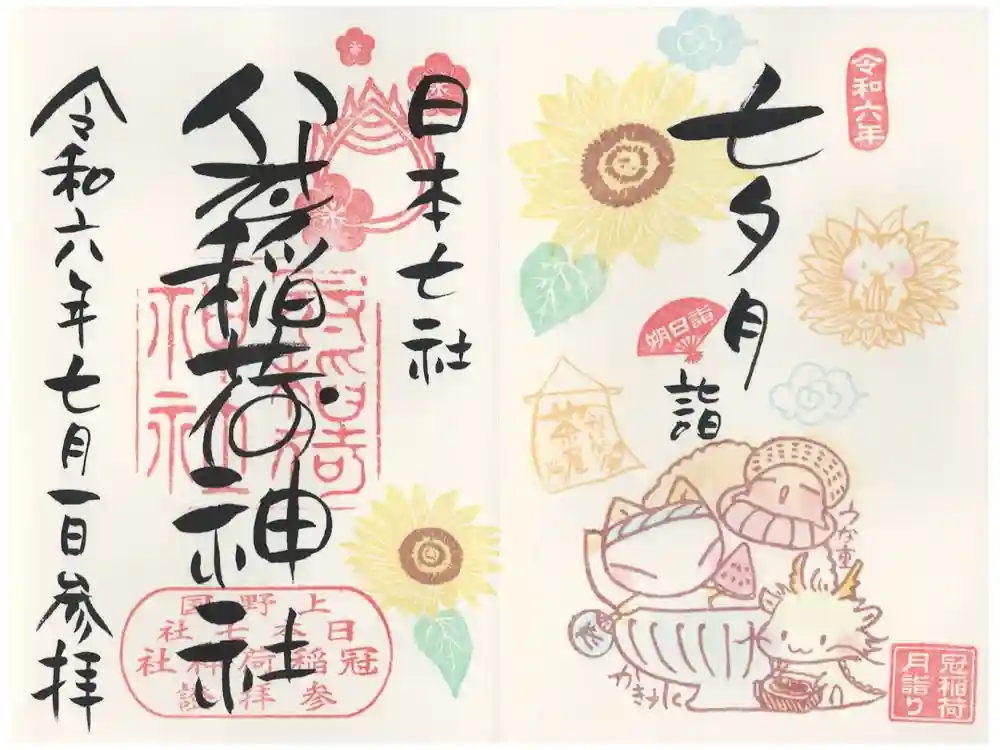 令和六年
七夕月詣
朔日詣
うな重
かき氷
冠稲荷
月詣り
日本七社
冠稲荷神社
上野国
日本七社
冠稲荷神社
参拝
令和六年七月一日参拝